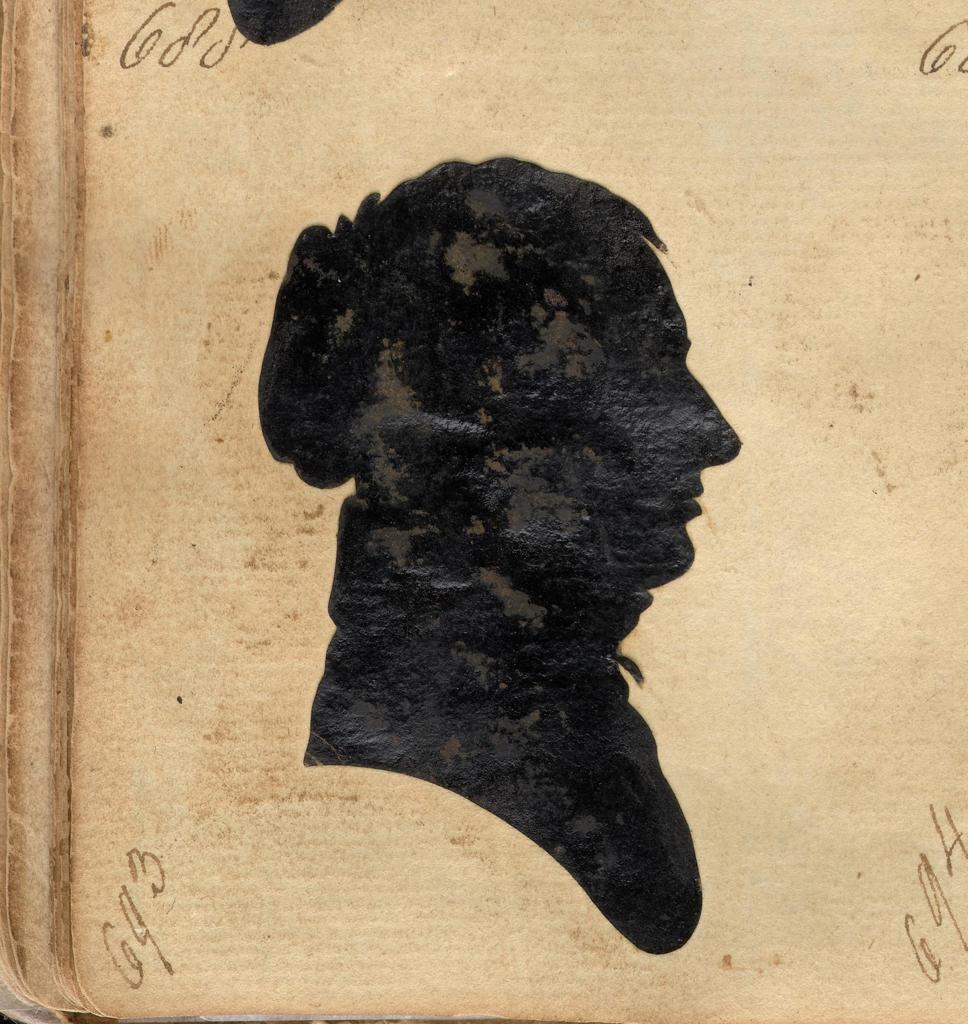 688
693
694